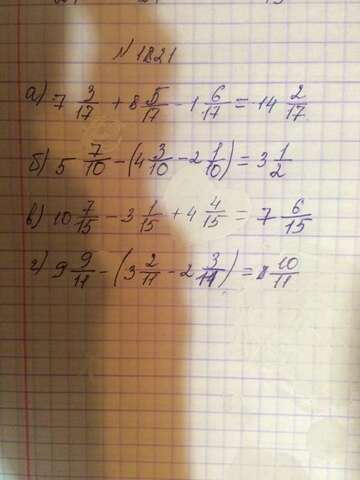 № 1821
а) 7 3/17 + 8 5/17 - 1 6/17 = 14 2/17
б) 5 7/10 - (4 3/10 - 2 1/10) = 3 1/2
в) 10 7/15 - 3 1/15 + 4 4/15 = 7 6/15
г) 9 9/11 - (3 2/11 - 2 3/11) = 8 10/11